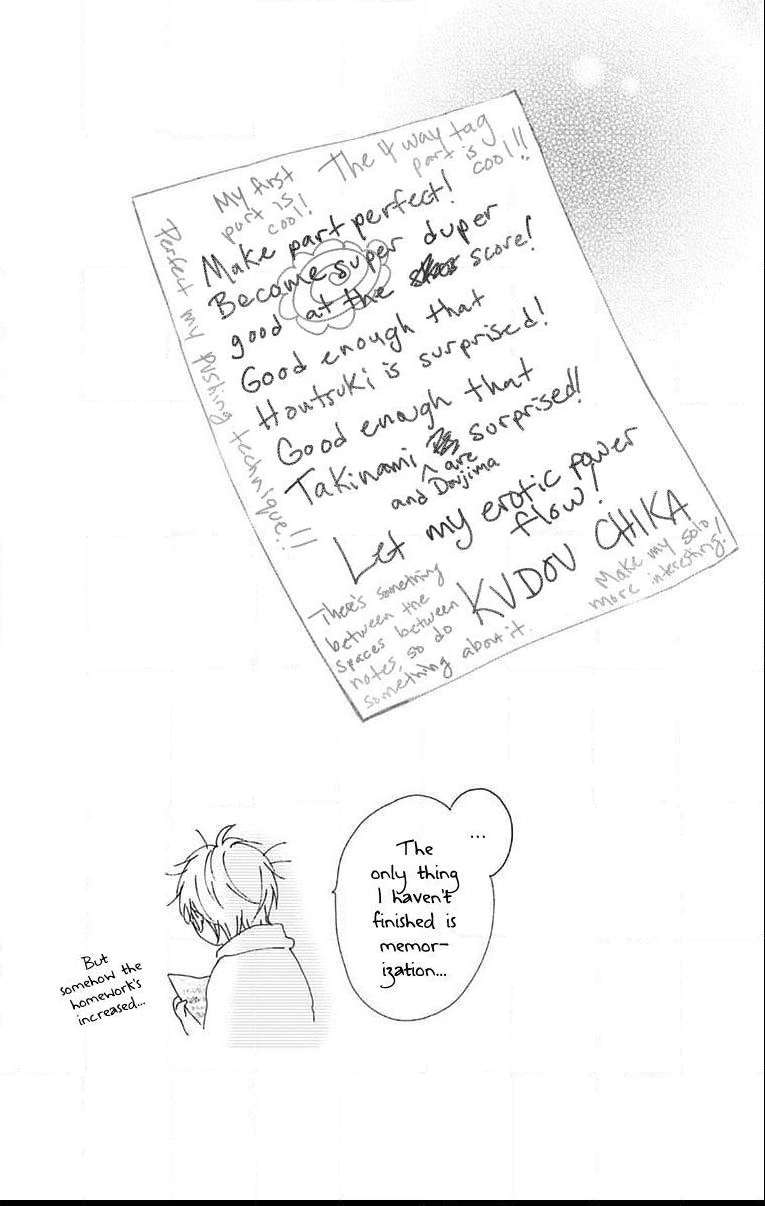 My first
part is
cool!
The 4 way tag
part is
cool!!
Make part perfect!
Become super duper
good at the score!
Good enough that
Houtsuki is surprised!
Good enough that
Takinami are surprised!
and Doujima
Let my erotic power
flow!
KUDOU CHIKA
Perfect my pushing technique!!
There's something
between the
spaces between
notes, so do
something about it.
Make my solo
more interesting!
...
The
only thing
I haven't
finished is
memor-
ization...
But
somehow the
homework's
increased...